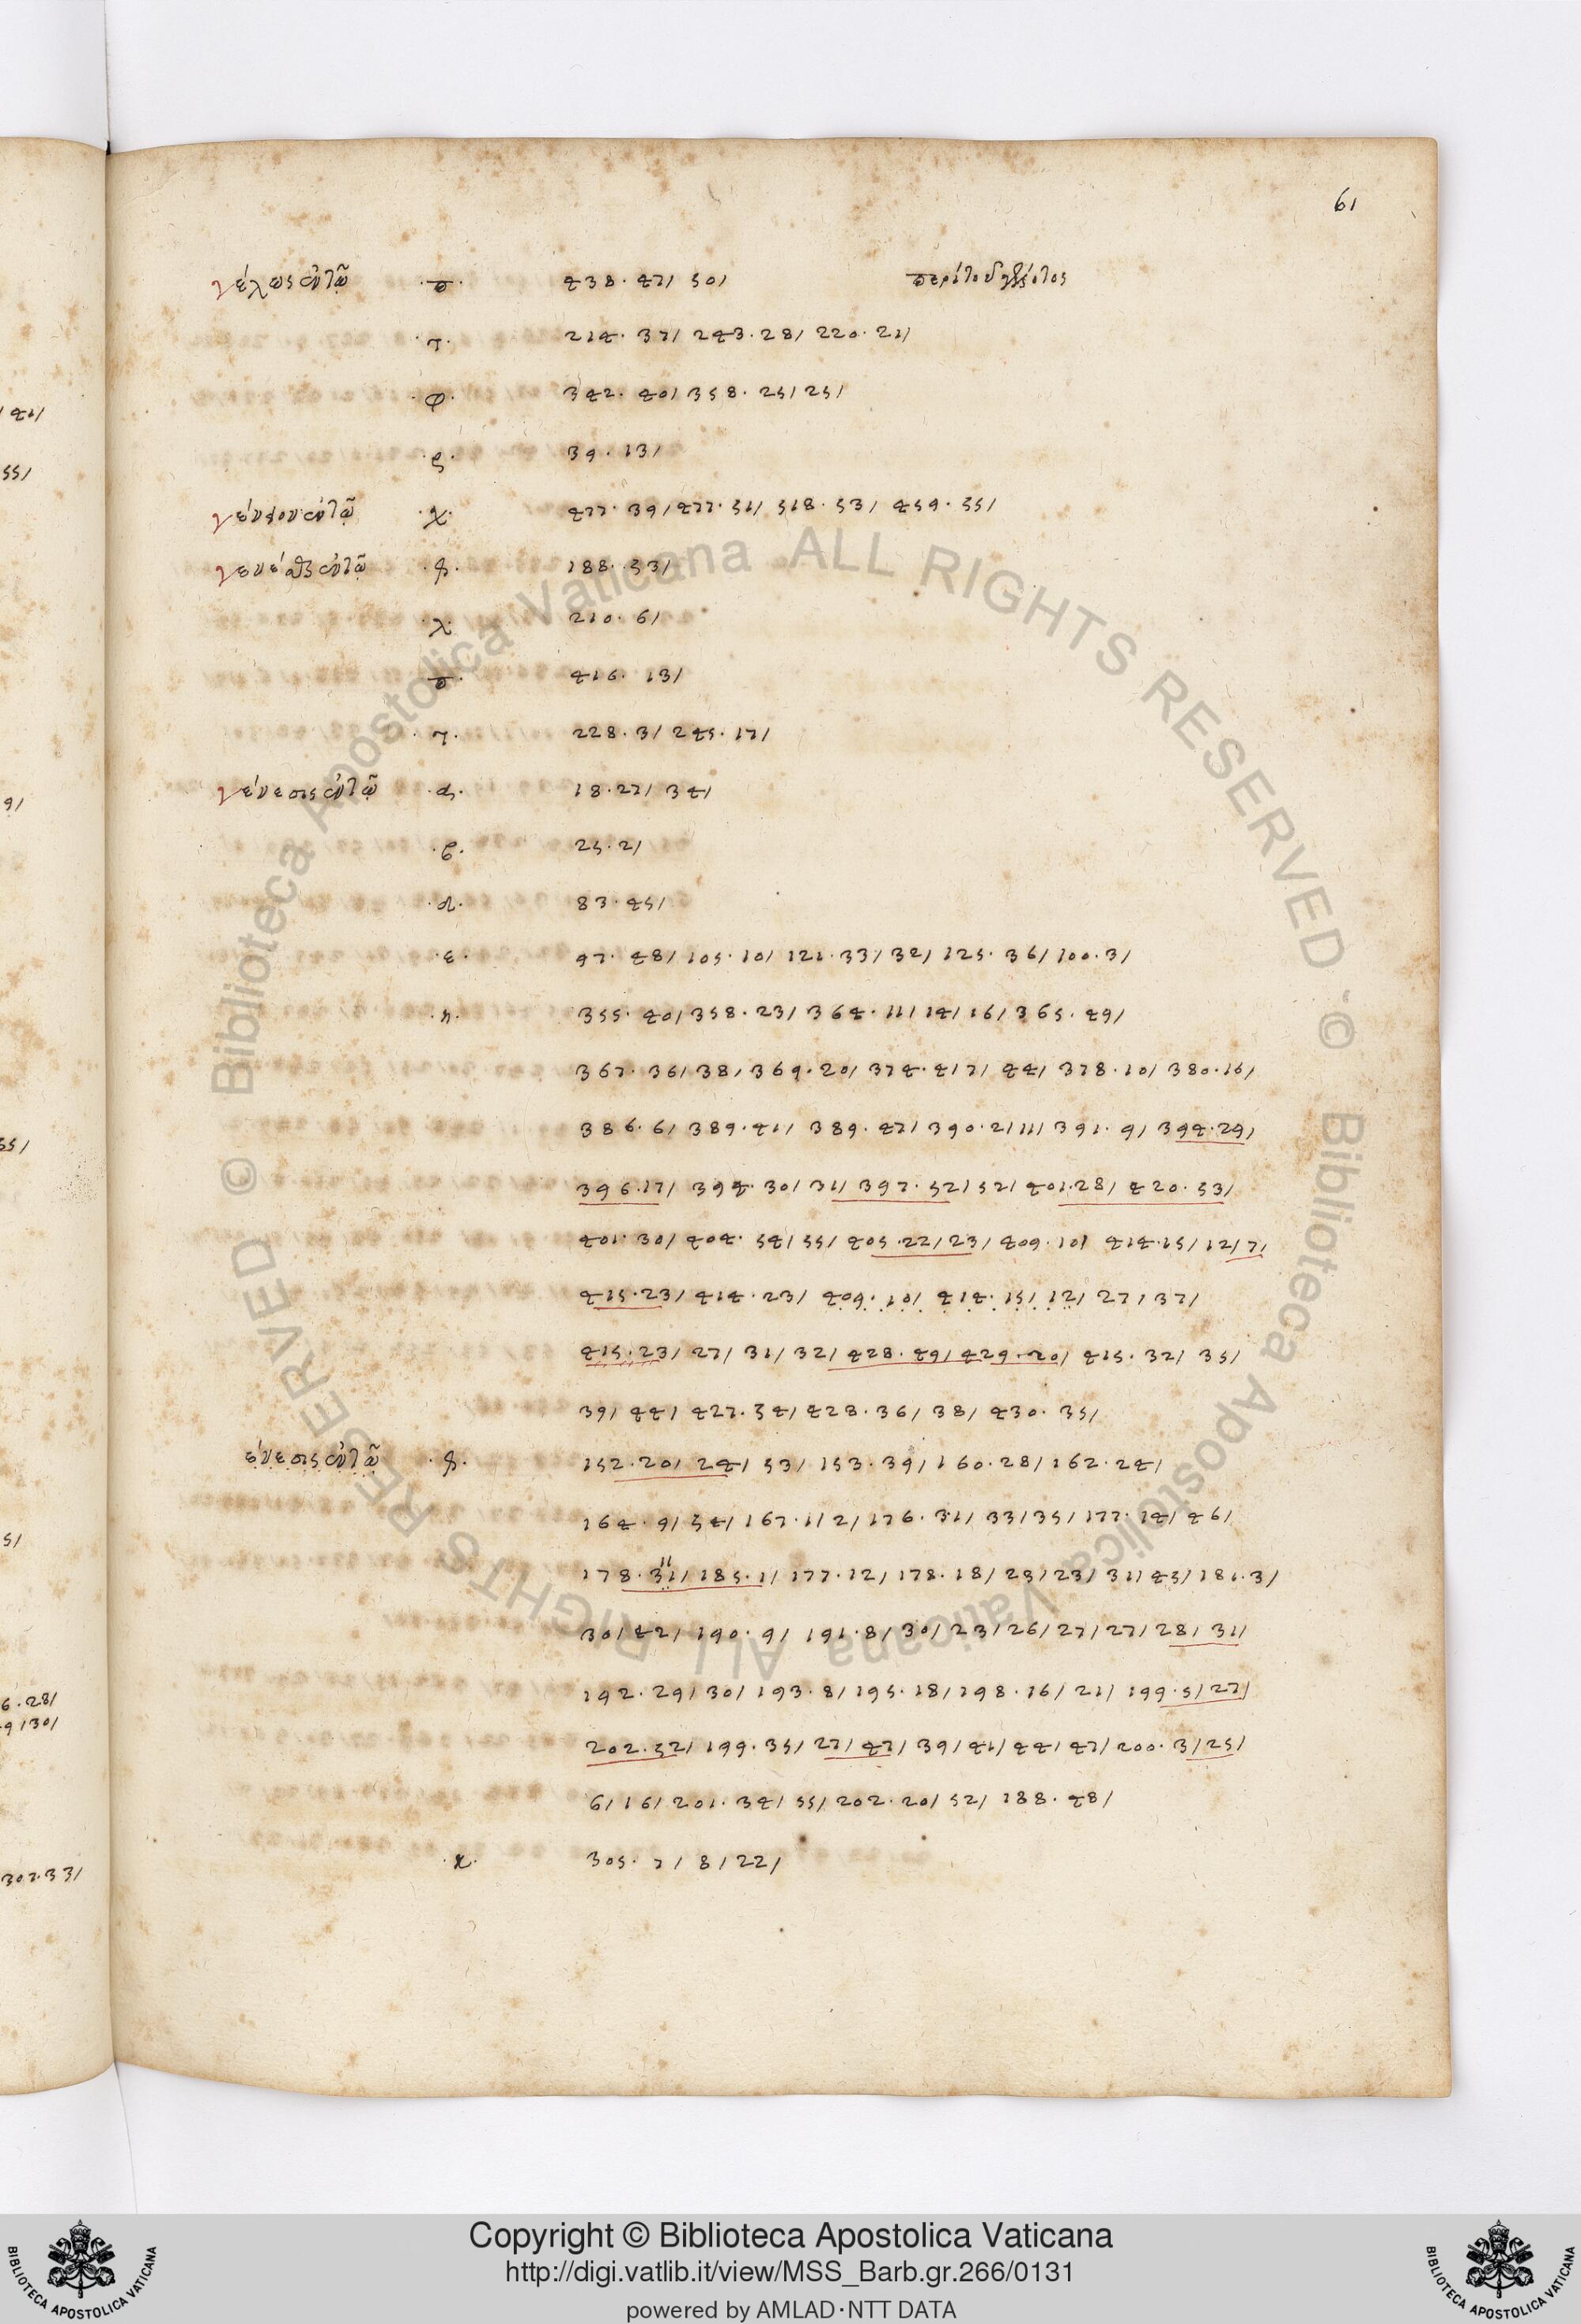 61
γέλως αὐτῷ ·π· 438 · 47/ 50/ περὶ τοῦ γελῶτος
·τ· 214 · 37/ 243 · 28/ 220 · 21/
·φ· 342 · 40/ 358 · 25/ 25/
39 · 13/
·χ· 477 · 39/ 477 · 51/ 518 · 53/ 459 · 55/
188 · 53/
·λ· 210 · 6/
·π· 416 · 13/
·τ· 228 · 3/ 245 · 17/
γένεσις αὐτῷ ·α· 18 · 27/ 34/
·β· 25 · 2/
·δ· 83 · 45/
·ε· 97 · 48/ 105 · 10/ 121 · 33/ 32/ 125 · 36/ 100 · 3/
·η· 355 · 40/ 358 · 23/ 364 · 11/ 14/ 16/ 365 · 49/
367 · 36/ 38/ 369 · 20/ 374 · 41/ 7/ 44/ 378 · 10/ 380 · 16/
386 · 6/ 389 · 41/ 389 · 47/ 390 · 2/ 11/ 391 · 9/ 394 · 29/
396 · 17/ 394 · 30/ 31/ 397 · 52/ 52/ 401 · 28/ 420 · 53/
401 · 30/ 404 · 54/ 55/ 405 · 22/ 23/ 409 · 10/ 414 · 15/ 12/ 7/
415 · 23/ 414 · 23/ 409 · 10/ 414 · 15/ 12/ 27/ 37/
415 · 23/ 27/ 31/ 32/ 428 · 49/ 429 · 20/ 415 · 32/ 35/
39/ 44/ 427 · 54/ 428 · 36/ 38/ 430 · 35/
ένεσις αὐτῷ 152 · 20/ 24/ 53/ 153 · 39/ 160 · 28/ 162 · 24/
164 · 9/ 54/ 167 · 1/ 2/ 176 · 31/ 33/ 35/ 177 · 14/ 46/
178 · 31/ 185 · 1/ 177 · 12/ 178 · 18/ 23/ 23/ 31/ 43/ 181 · 3/
30/ 42/ 190 · 9/ 191 · 8/ 30/ 23/ 26/ 27/ 27/ 28/ 31/
192 · 29/ 30/ 193 · 8/ 195 · 18/ 198 · 16/ 21/ 199 · 5/ 27/
202 · 52/ 199 · 35/ 27/ 47/ 39/ 41/ 44/ 47/ 200 · 3/ 25/
6/ 16/ 201 · 34/ 55/ 202 · 20/ 52/ 188 · 48/
·κ· 305 · 7/ 8/ 22/
41/
55/
9/
55/
5/
6 · 28/
9/ 30/
307 · 33/
© Biblioteca Apostolica Vaticana ALL RIGHTS RESERVED © Biblioteca Apostolica Vaticana ALL RIGHTS RESERVED
Copyright © Biblioteca Apostolica Vaticana
http://digi.vatlib.it/view/MSS_Barb.gr.266/0131
powered by AMLAD·NTT DATA
BIBLIOTECA APOSTOLICA VATICANA
BIBLIOTECA APOSTOLICA VATICANA